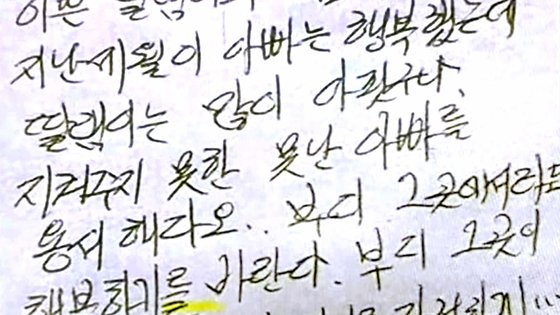 이쁜 딸램이
지난 세월이 아빠는 행복했는데
딸램이는 많이 아팠구나.
지켜주지 못한 못난 아빠를
용서해다오.. 부디 그곳에서라도
행복하기를 바란다. 부디 그곳이